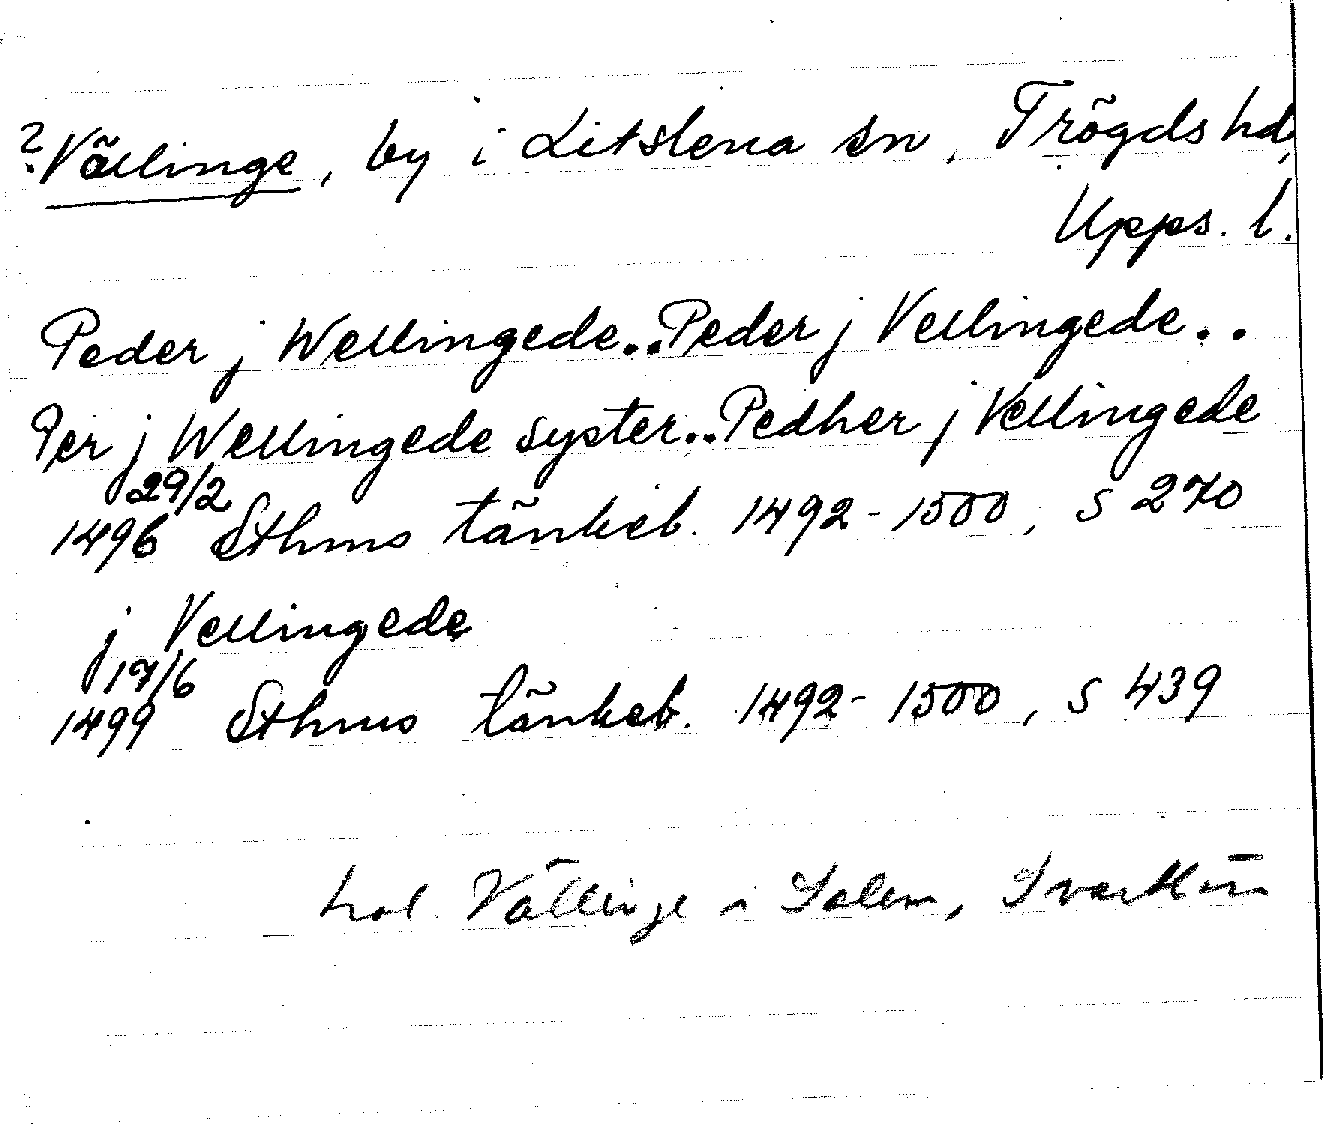 ? Vällinge, by i Litslena sn, Trögds hd,
Upps. l.
Peder j Wellingede.. Peder j Vellingede..
Per j Wellingede syster.. Pedher j Vellingede
29/2
1496 Sthms tänkeb. 1492-1500, s 270
j Vellingede
17/6
1499 Sthms tänkeb. 1492-1500, s 439
Vällinge i Salem, Svartlösa